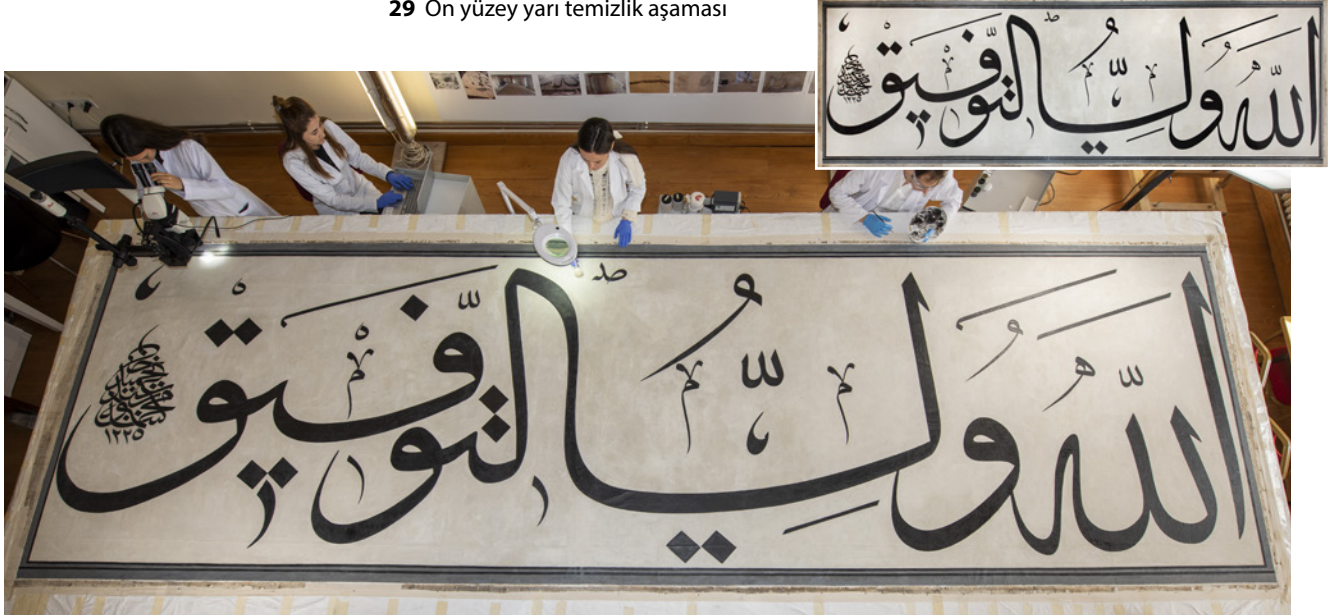 29 Ön yüzey yarı temizlik aşaması
اللهُ وَلِيُّ التَّوْفِيقِ
١٢٢٥
اللهُ وَلِيُّ التَّوْفِيقِ
١٢٢٥